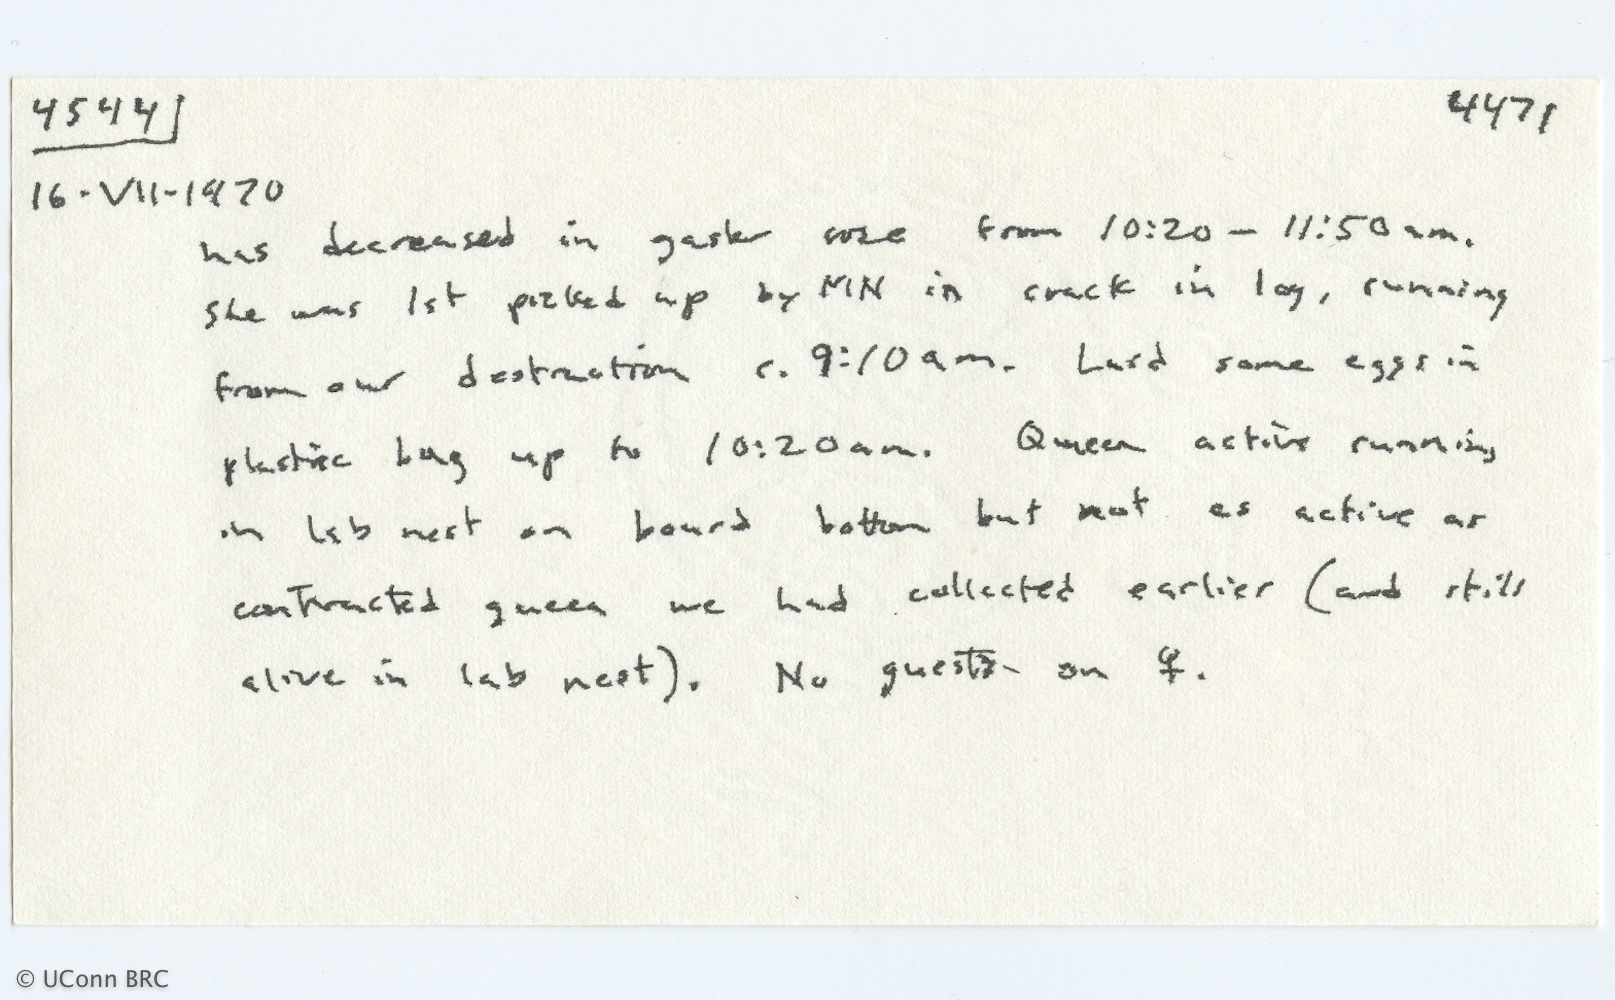 4544 4471
16-VII-1970
has decreased in gaster size from 10:20 - 11:50 am.
She was 1st picked up by MN in crack in log, running
from our destruction c. 9:10 am. Laid some eggs in
plastic bag up to 10:20 am. Queen active running
in lab nest on board bottom but not as active as
contracted queen we had collected earlier (and still
alive in lab nest). No guests on ♀.
© UConn BRC